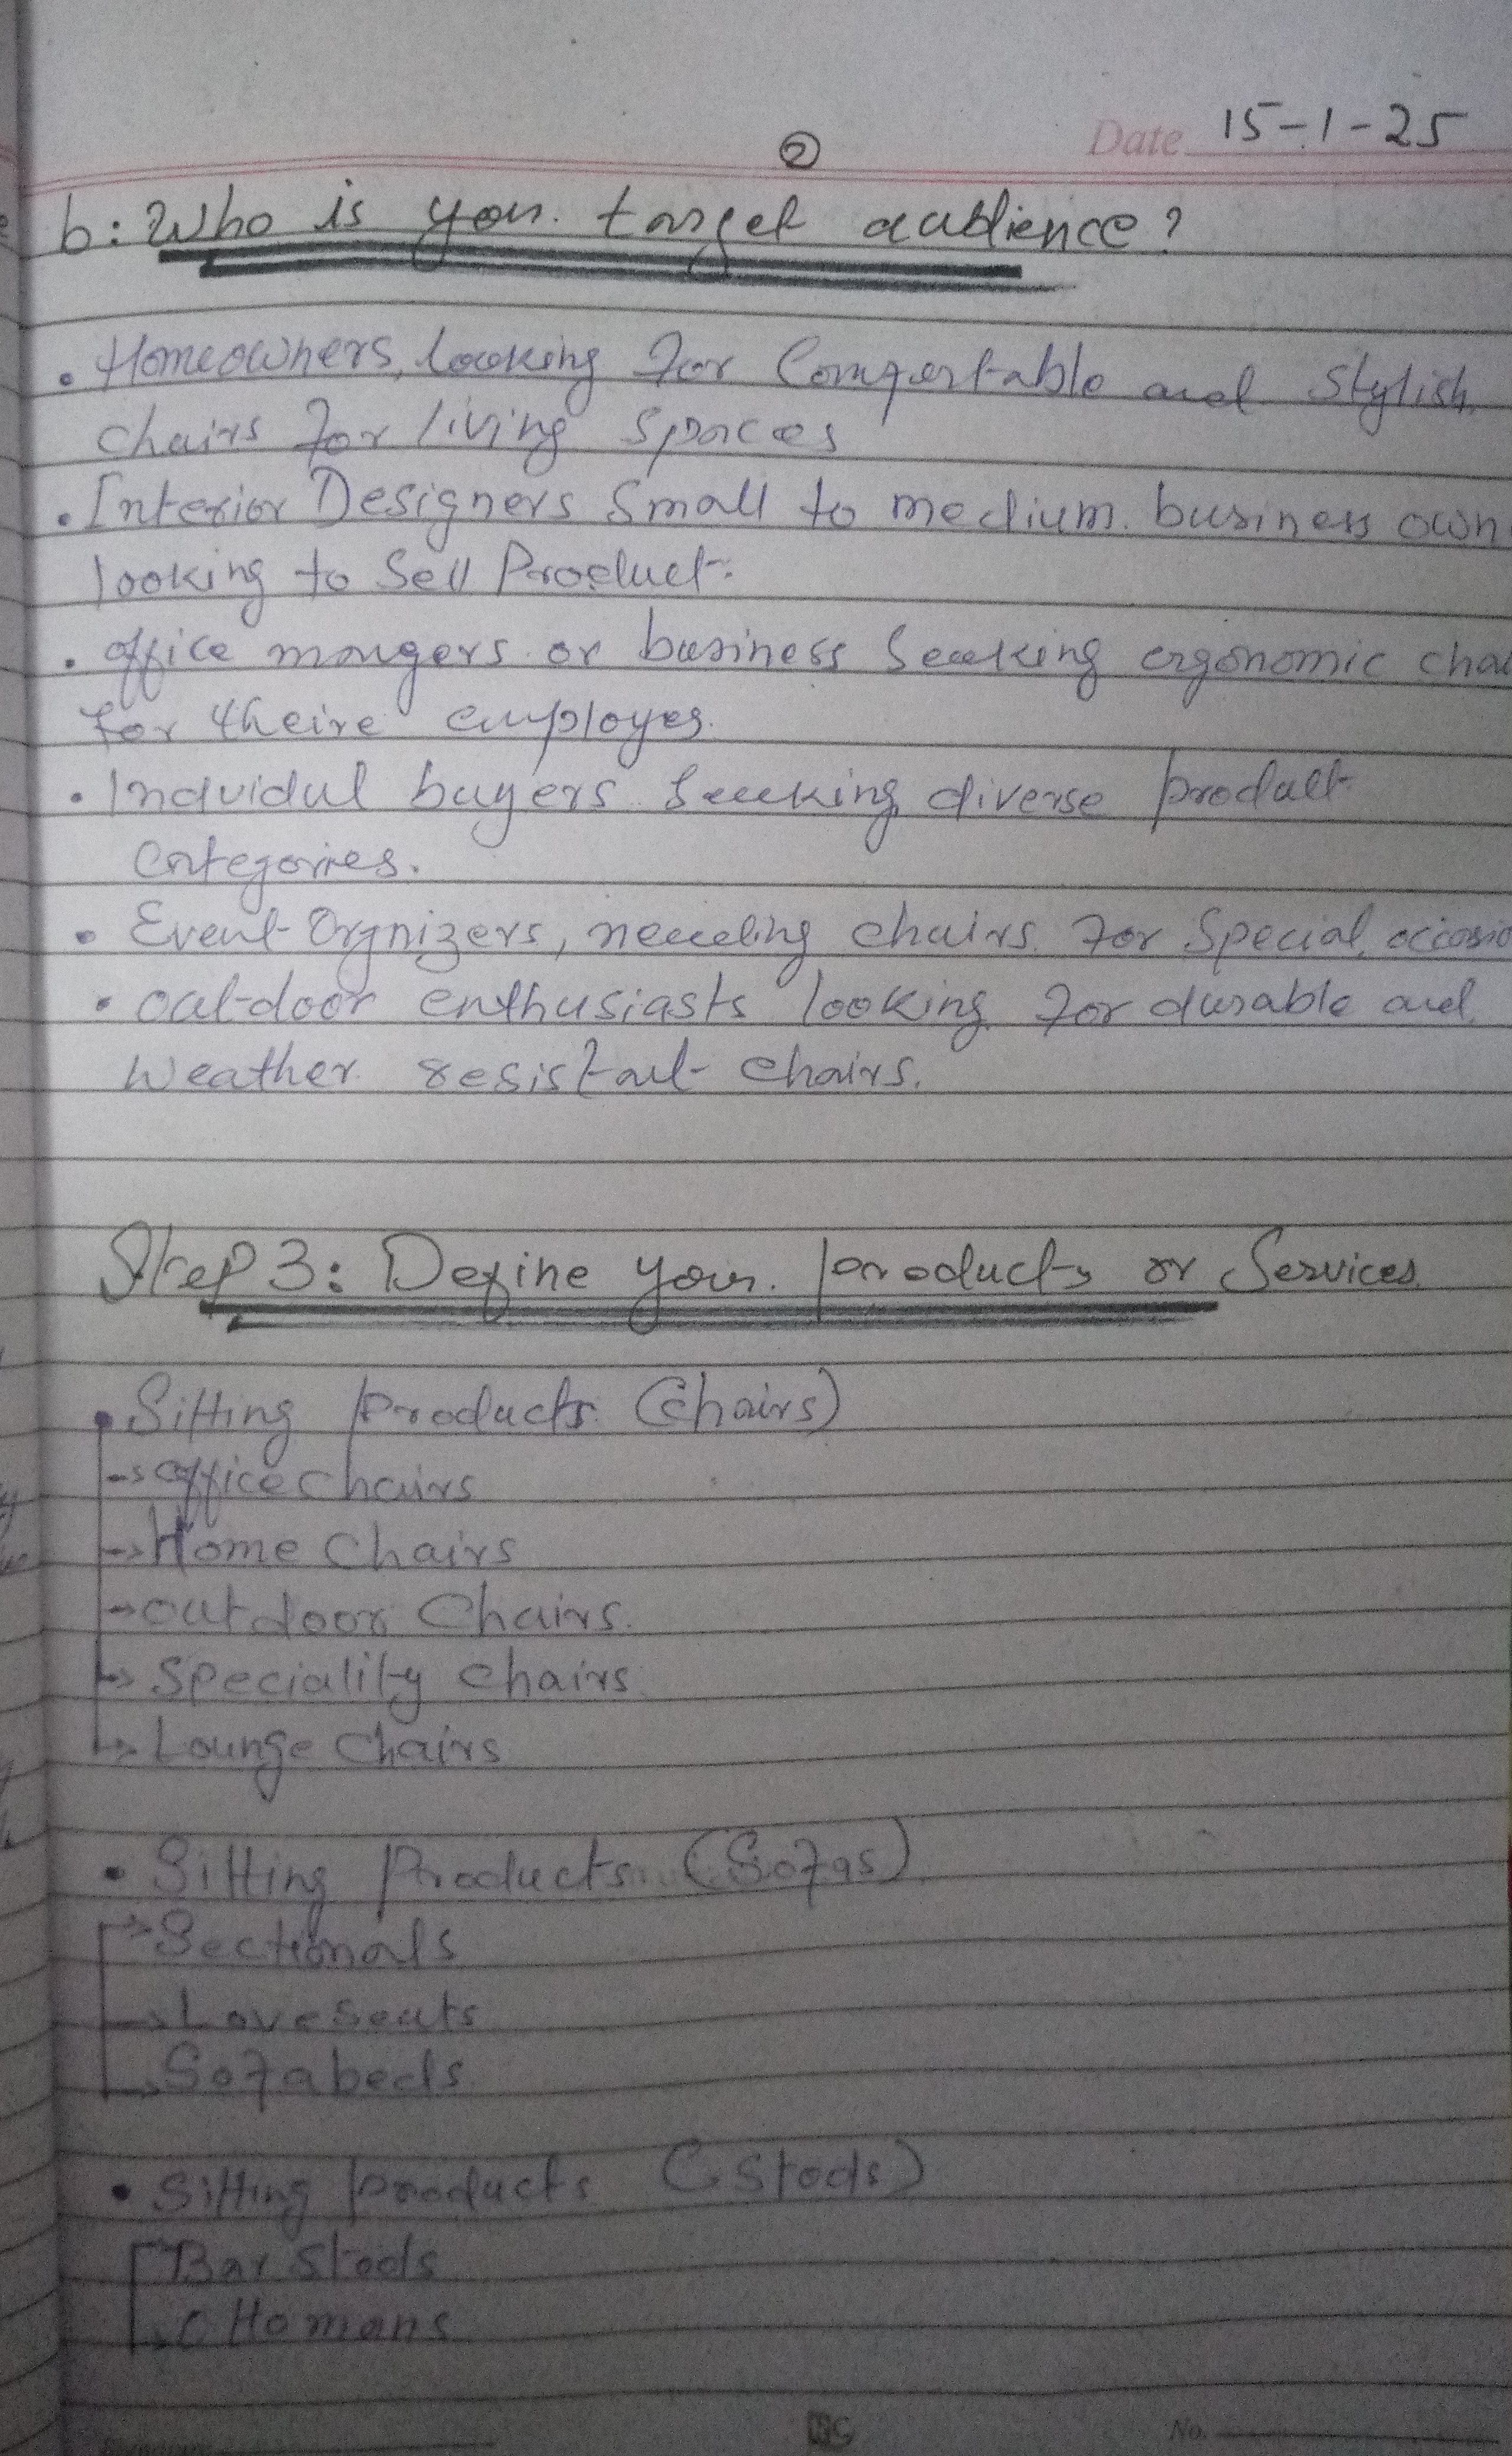 Date 15-1-25
②
b: Who is your target audience?
• Homeowners, looking for Comfortable and Stylish
chairs for living spaces
• Interior Designers Small to medium business own
looking to Sell Product.
• office mangers or business Seeking ergonomic chai
for theire employes.
• Indvidul buyers Seeking diverse product
Categories.
• Event Orgnizers, needing chairs for Special occasio
• outdoor enthusiasts looking for durable and
Weather resistant chairs.
Step 3: Define your products or Services
• Sitting Products (Chairs)
→ office chairs
→ Home Chairs
→ outdoor Chairs.
→ Speciality chairs
→ Lounge Chairs
• Sitting Products (Sofas)
→ Sectionals
→ Love Seats
→ Sofabeds
• Sitting products (Stools)
Bar Stools
→ Ottomans
No.